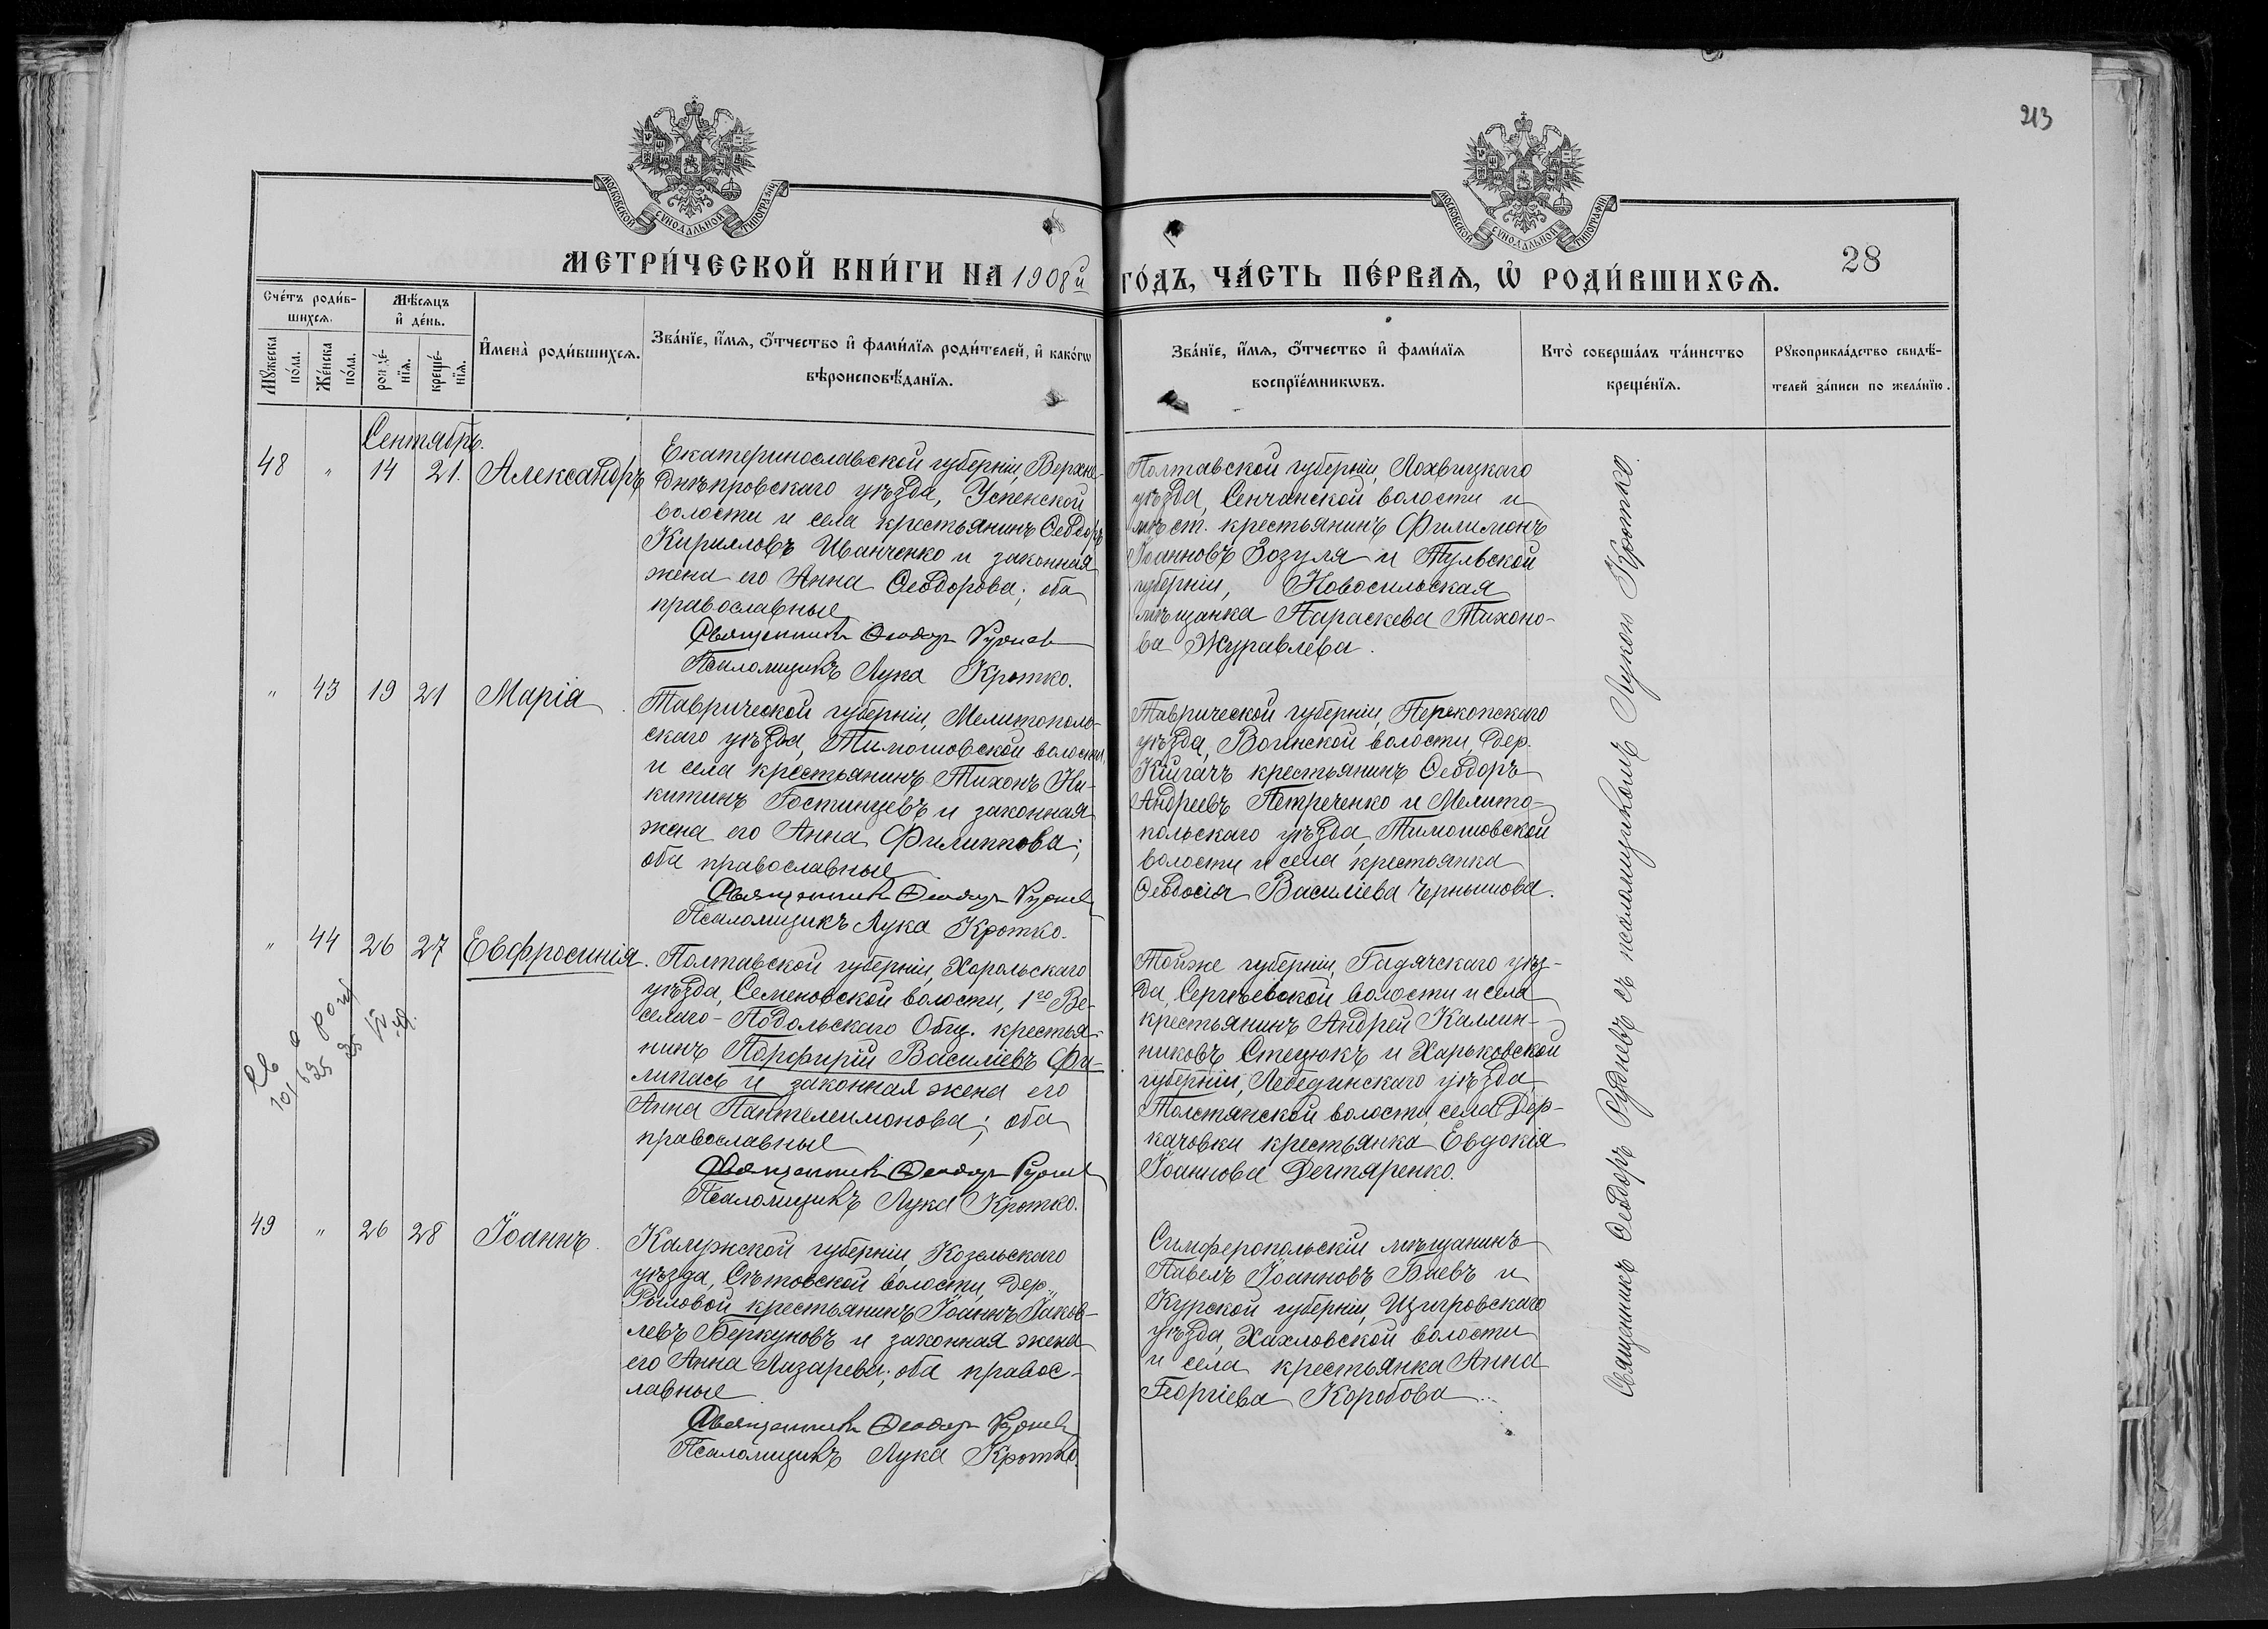 213
МОСКОВСКОЙ СУНОДАЛЬНОЙ ТИПОГРАФІИ
МОСКОВСКОЙ СУНОДАЛЬНОЙ ТИПОГРАФІИ
МЕТРИ́ЧЕСКОЙ КНИ́ГИ НА 1908й ГО́ДЪ, ЧА́СТЬ ПЕ́РВАѦ, Ѡ҆ РОДИ́ВШИХСѦ.
28
Сче́тъ роди́в-
шихсѧ.
Мѣ́сѧцъ
и҆ де́нь.
И҆мена̀ роди́вшихсѧ.
Зва́нїе, и҆́мѧ, ѻ҆́тчество и҆ фами́лїѧ роди́телей, и҆ како́гѡ
вѣроисповѣ́данїѧ.
Зва́нїе, и҆́мѧ, ѻ҆́тчество и҆ фами́лїѧ
воспрїе́мникѡвъ.
Кто̀ соверша́лъ та́инство
креще́нїѧ.
Рꙋкоприкла́дство свидѣ́-
телей за́писи по жела́нїю.
Мꙋ́жеска
по́ла.
Же́нска
по́ла.
рожде́-
нїѧ.
креще́-
нїѧ.
Сентябрь.
48 " 14 21. Александръ
Екатеринославской губерніи, Верхне-
днѣпровскаго уѣзда, Успенской
волости и села крестьянинъ Ѳеодоръ
Кирилловъ Иванченко и законная
жена его Анна Ѳеодорова; оба
православные
Священникъ Ѳеодоръ Руднев
Псаломщикъ Лука Кротко.
Полтавской губерніи, Лохвицкаго
уѣзда, Сенчанской волости и
мѣст. крестьянинъ Филимонъ
Іоанновъ Зозуля и Тульской
губерніи, Новосильская
мѣщанка Параскева Тихоно-
ва Журавлева.
" 43 19 21 Марія
Таврической губерніи, Мелитополь-
скаго уѣзда, Тимошовской волости
и села крестьянинъ Тихонъ Ни-
китинъ Гостинцевъ и законная
жена его Анна Филиппова;
оба православные
Священникъ Ѳеодоръ Руднев
Псаломщикъ Лука Кротко.
Таврической губерніи, Перекопскаго
уѣзда, Воинской волости, дер.
Кигачъ крестьянинъ Ѳеодоръ
Андреевъ Петреченко и Мелито-
польскаго уѣзда, Тимошовской
волости и села крестьянка
Ѳеодосія Василіева Чернышова.
" 44 26 27 Евфросинія.
Полтавской губерніи, Хорольскаго
уѣзда, Семеновской волости, 1го Ве-
селаго-Подольскаго Общ. крестья-
нинъ Порфирій Василіевъ Фи-
липась и законная жена его
Анна Пантелеимонова; оба
православные
Священникъ Ѳеодоръ Руднев
Псаломщикъ Лука Кротко.
Тойже губерніи, Гадячскаго уѣз-
да, Сергѣевской волости и села
крестьянинъ Андрей Каллин-
никовъ Стецюкъ и Харьковской
губерніи, Лебединскаго уѣзда
Толстянской волости, села Дер-
качовки крестьянка Евдокія
Іоаннова Дегтяренко.
49 " 26 28 Іоаннъ.
Калужской губерніи, Козельскаго
уѣзда, Сѣтовской волости, дер.
Рыловой крестьянинъ Іоаннъ Іаков-
левъ Беркуновъ и законная жена
его Анна Лазарева; оба правос-
лавные
Священникъ Ѳеодоръ Руднев
Псаломщикъ Лука Кротко.
Симферопольскій мѣщанинъ
Павелъ Іоанновъ Баевъ и
Курской губерніи, Щигровскаго
уѣзда, Хахловской волости
и села крестьянка Анна
Георгіева Коробова
Священникъ Ѳеодоръ Рудневъ съ псаломщикомъ Лукою Кротко.